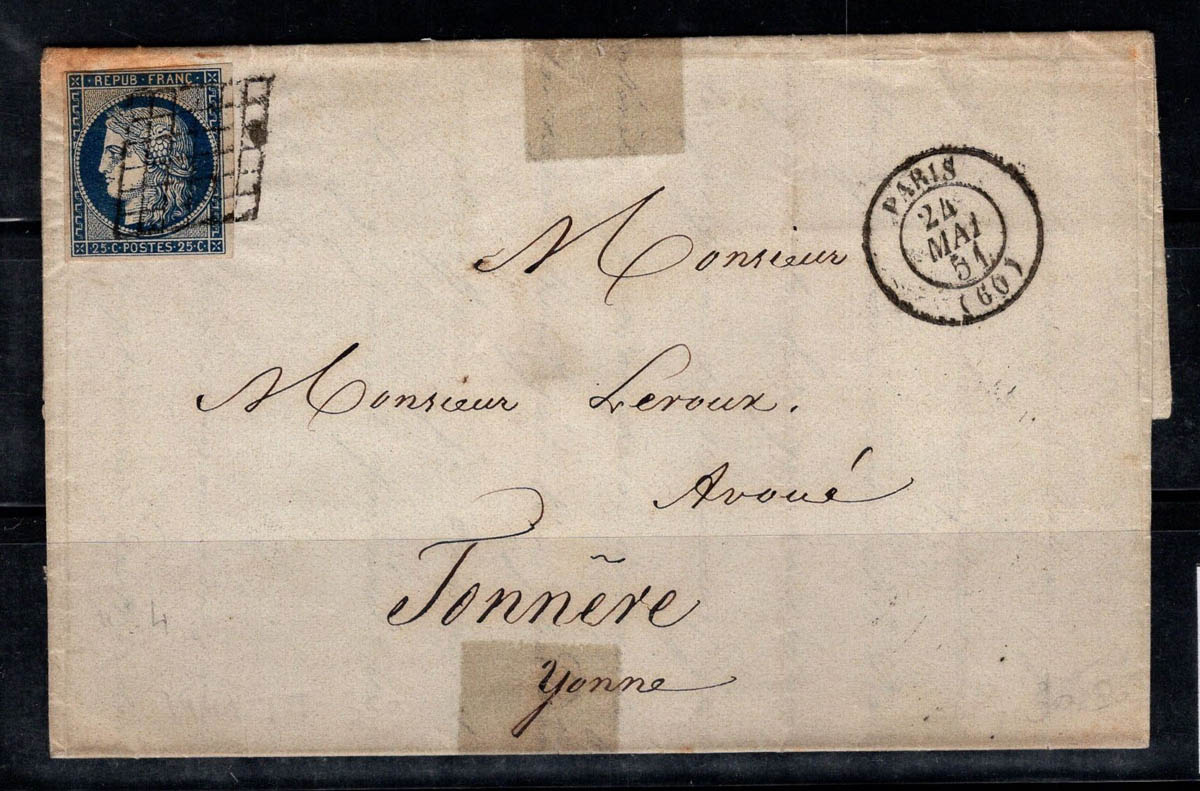 REPUB·FRANC·
25·C·POSTES·25·C·
PARIS
24
MAI
51
(60)
Monsieur
Monsieur Leroux.
Avoué
Tonnēre
Yonne
4